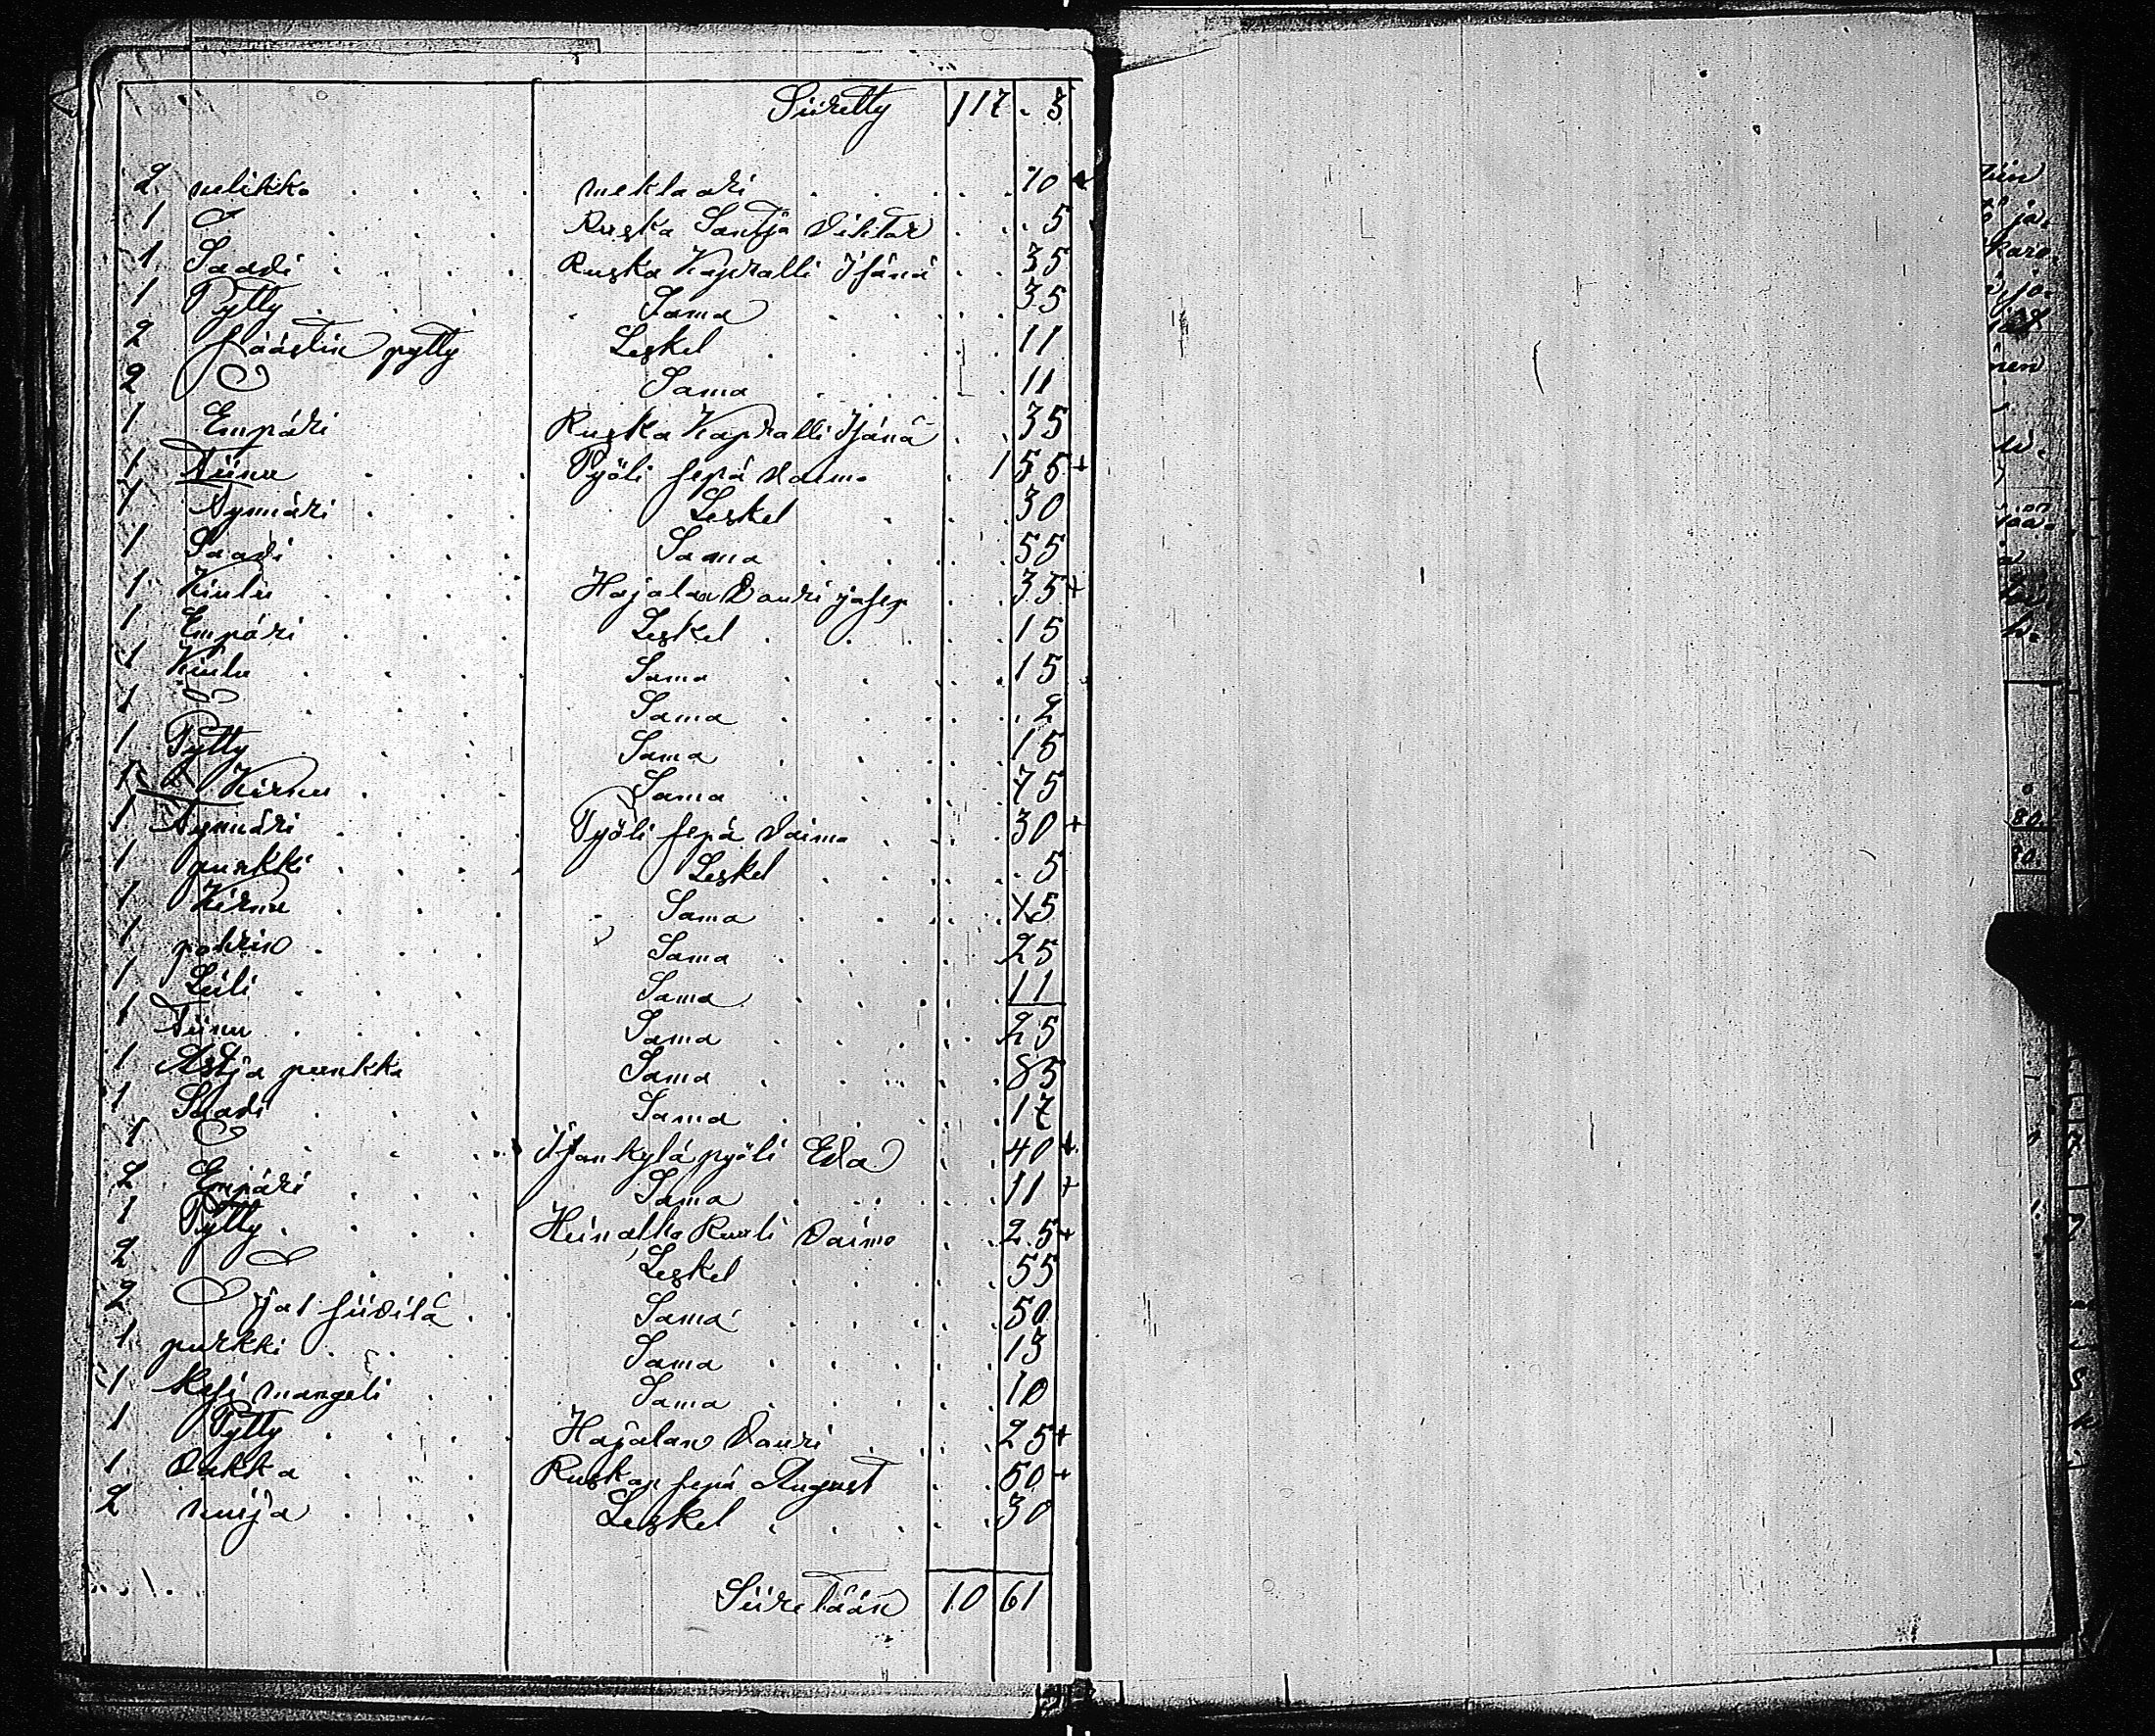 Siiretty 117 . 3
2 nelikko . . . . meklaari . . . . 70 +
1 " . . . . Ruska Santja Viktor . . . 5
1 Saavi . . . . Ruska Kapralli Isänä . . 35
1 Pytty . . . . Sama . . . . 35
2 fäästin pytty Leskel . . . . 11
2 " Sama . . . . 11
1 Empäri Ruska Kapralli Isänä . . 35
1 Tiinu . . . . Pyöli sepä Vaimo . 1 55 +
1 Kymiäri . . . Leskel . . . 30
1 Saavi . . . . Sama . . . . 55
1 Kiulu . . . . Hajalan Vouri josep . . 35 +
1 Empäri . . . . Leskel . . . . 15
1 Kiulu . . . . Sama . . . . 15
1 " . . . . Sama . . . . 2
1 Pytty . . . . Sama . . . . 15
1 Kirnu . . . . Sama . . . . 75
1 Kymiäri . . . Pyöli sepä Vaimo . . . 30 +
1 purkki . . . . Leskel . . . . 5
1 Kirnu . . . . Sama . . . . 45
1 pohrin . . . . Sama . . . . 25
1 Leili . . . Sama . . . . 11
1 Tiinu . . . Sama . . . . 25
1 Astja punkka Sama . . . . 85
1 Saavi . . . Sama . . . . 17
1 " . . . . Isonkylä pyöli Eva . . 40 +
2 Empäri . . . Sama . . . . 11 +
1 Pytty . . . . Heinalho Ruoti Vaimo . . 25 +
2 " . . . Leskel . . . . 55
2 " ja 1 siivilä . Sama . . . . 50
1 purkki . . . . Sama . . . . 13
1 Käsi mangeli . . Sama . . . . 10
1 Pytty . . . . Hajalan Vouri . . . 25 +
1 Vakka . . . . Ruskan sepä August . . 50 +
2 muija . . . . Leskel . . . . 30
Siiretään 10 61